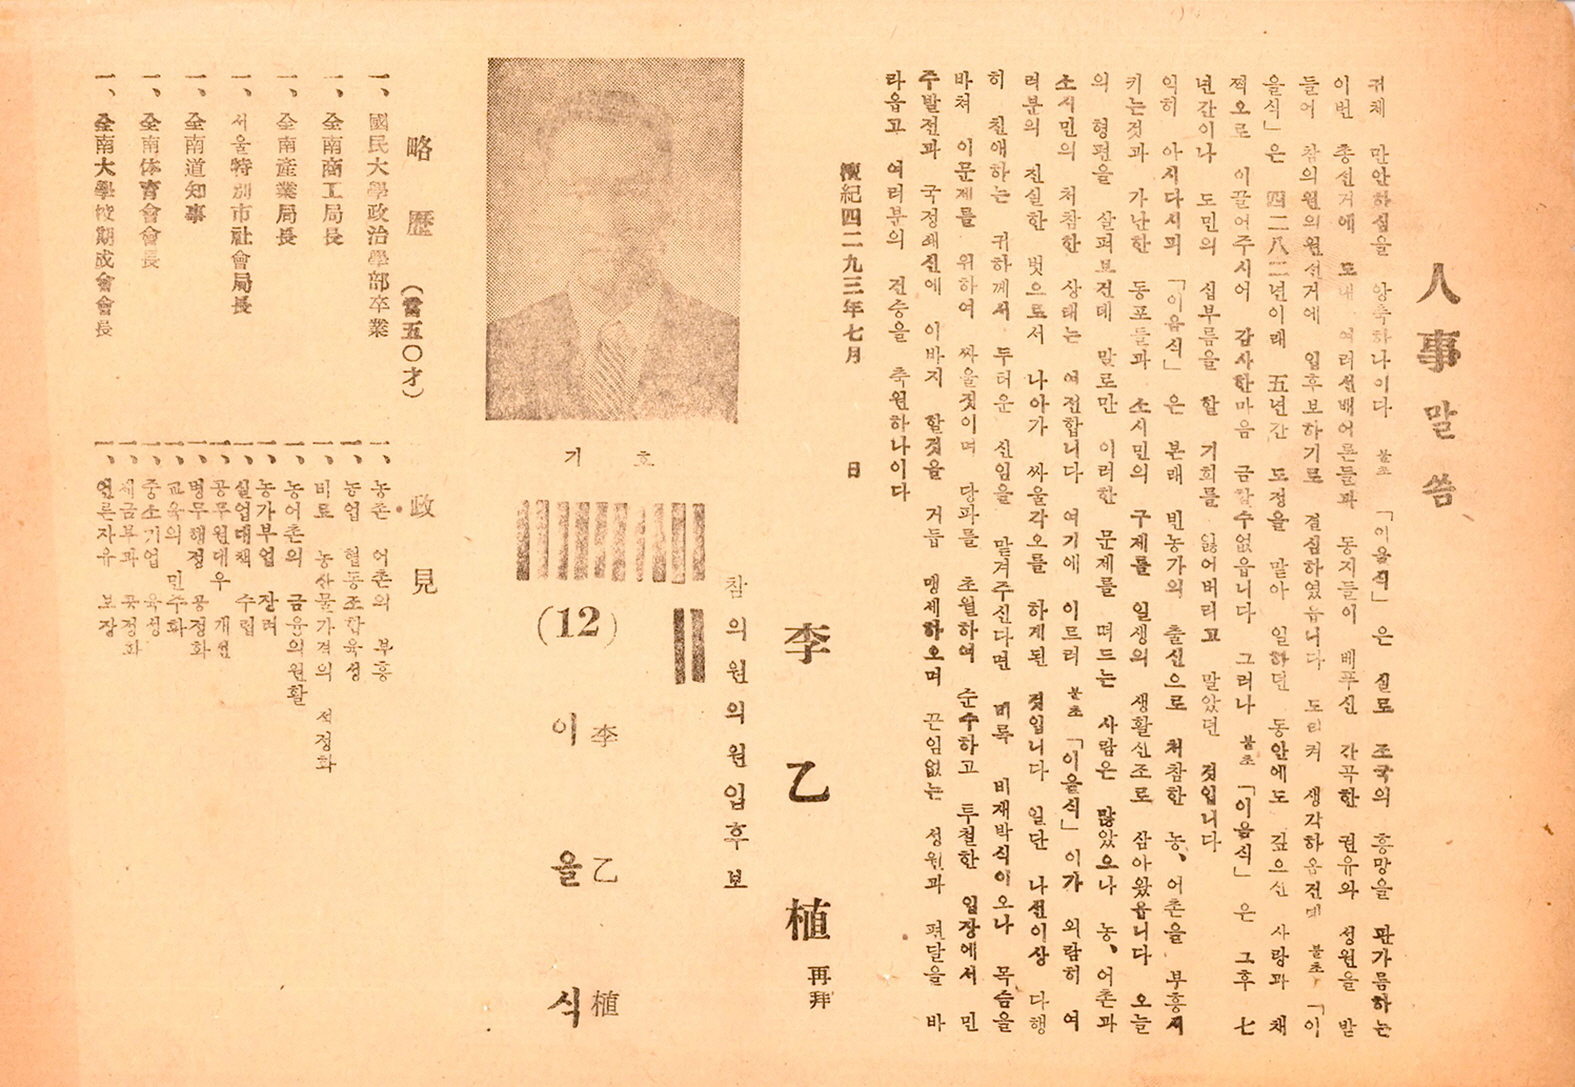 人事말씀
귀체 만안하심을 앙축하나이다 불초 「이을식」은 실로 조국의 흥망을 판가름하는
이번 총선거에 도내 여러선배어른들과 동지들이 베푸신 간곡한 권유와 성원을 받
들어 참의원의원선거에 입후보하기로 결심하였읍니다 도리켜 생각하옵건데 불초 「이
을식」은 四二八二년이래 五년간 도정을 맡아 일하던 동안에도 깊으신 사랑과 채
쩍으로 이끌어주시어 감사한마음 금할수없읍니다 그러나 불초 「이을식」은 그후 七
년간이나 도민의 십부름을 할 기회를 잃어버리고 말았던 것입니다
익히 아시다시피 「이을식」은 본래 빈농가의 출신으로 처참한 농、어촌을 부흥시
키는것과 가난한 동포들과 소시민의 구제를 일생의 생활신조로 삼아왔읍니다 오늘
의 형편을 살펴보건데 말로만 이러한 문제를 떠드는 사람은 많았으나 농、어촌과
소시민의 처참한 상태는 여전합니다 여기에 이르러 불초 「이을식」이가 외람히 여
러분의 진실한 벗으로서 나아가 싸울각오를 하게된 것입니다 일단 나선이상 다행
히 친애하는 귀하께서 두터운 신임을 맡겨주신다면 비록 비재박식이오나 목숨을
바쳐 이문제를 위하여 싸울것이며 당파를 초월하여 순수하고 투철한 입장에서 민
주발전과 국정쇄신에 이바지 할것을 거듭 맹세하오며 끈임없는 성원과 편달을 바
라옵고 여러부의 건승을 축원하나이다
檀紀四二九三年七月 日
李乙植 再拜
참의원의원입후보
기호
(12)
李乙植
이을식
略歷 (當五〇才)
一、國民大學政治學部卒業
一、全南商工局長
一、全南産業局長
一、서울特別市社會局長
一、全南道知事
一、全南体育會會長
一、全南大學校期成會會長
政見
一、농촌 어촌의 부흥
一、농업 협동조합육성
一、비료 농산물가격의 적정화
一、농어촌의 금융의원활
一、농가부업 장려
一、실업대책 수립
一、공무원대우 개선
一、병무행정 공정화
一、교육의 민주화
一、중소기업 육성
一、세금부과 공정화
一、언론자유 보장